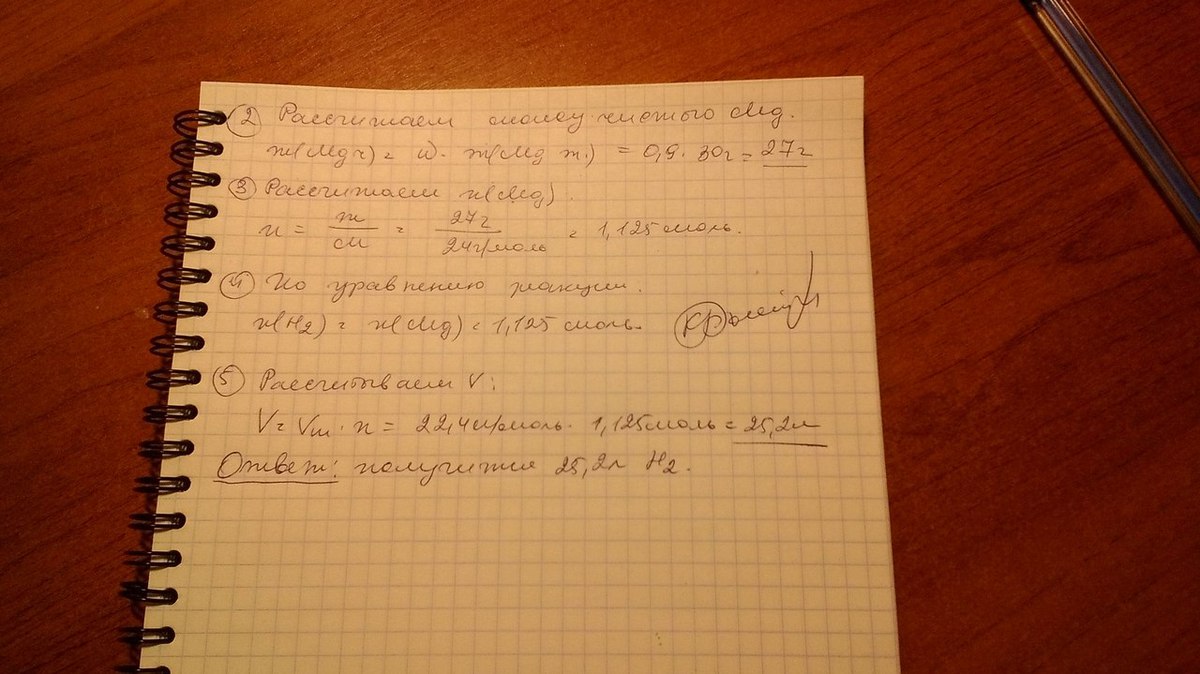 ② Рассчитаем массу чистого Mg.
m(Mg ч) = ω · m(Mg т.) = 0,9 · 30г = 27г
③ Рассчитаем n(Mg).
n = m/M = 27г/24г/моль = 1,125 моль.
④ По уравнению реакции.
n(H₂) = n(Mg) = 1,125 моль.
⑤ Рассчитываем V:
V = Vm · n = 22,4л/моль · 1,125моль = 25,2л
Ответ: получится 25,2л H₂.